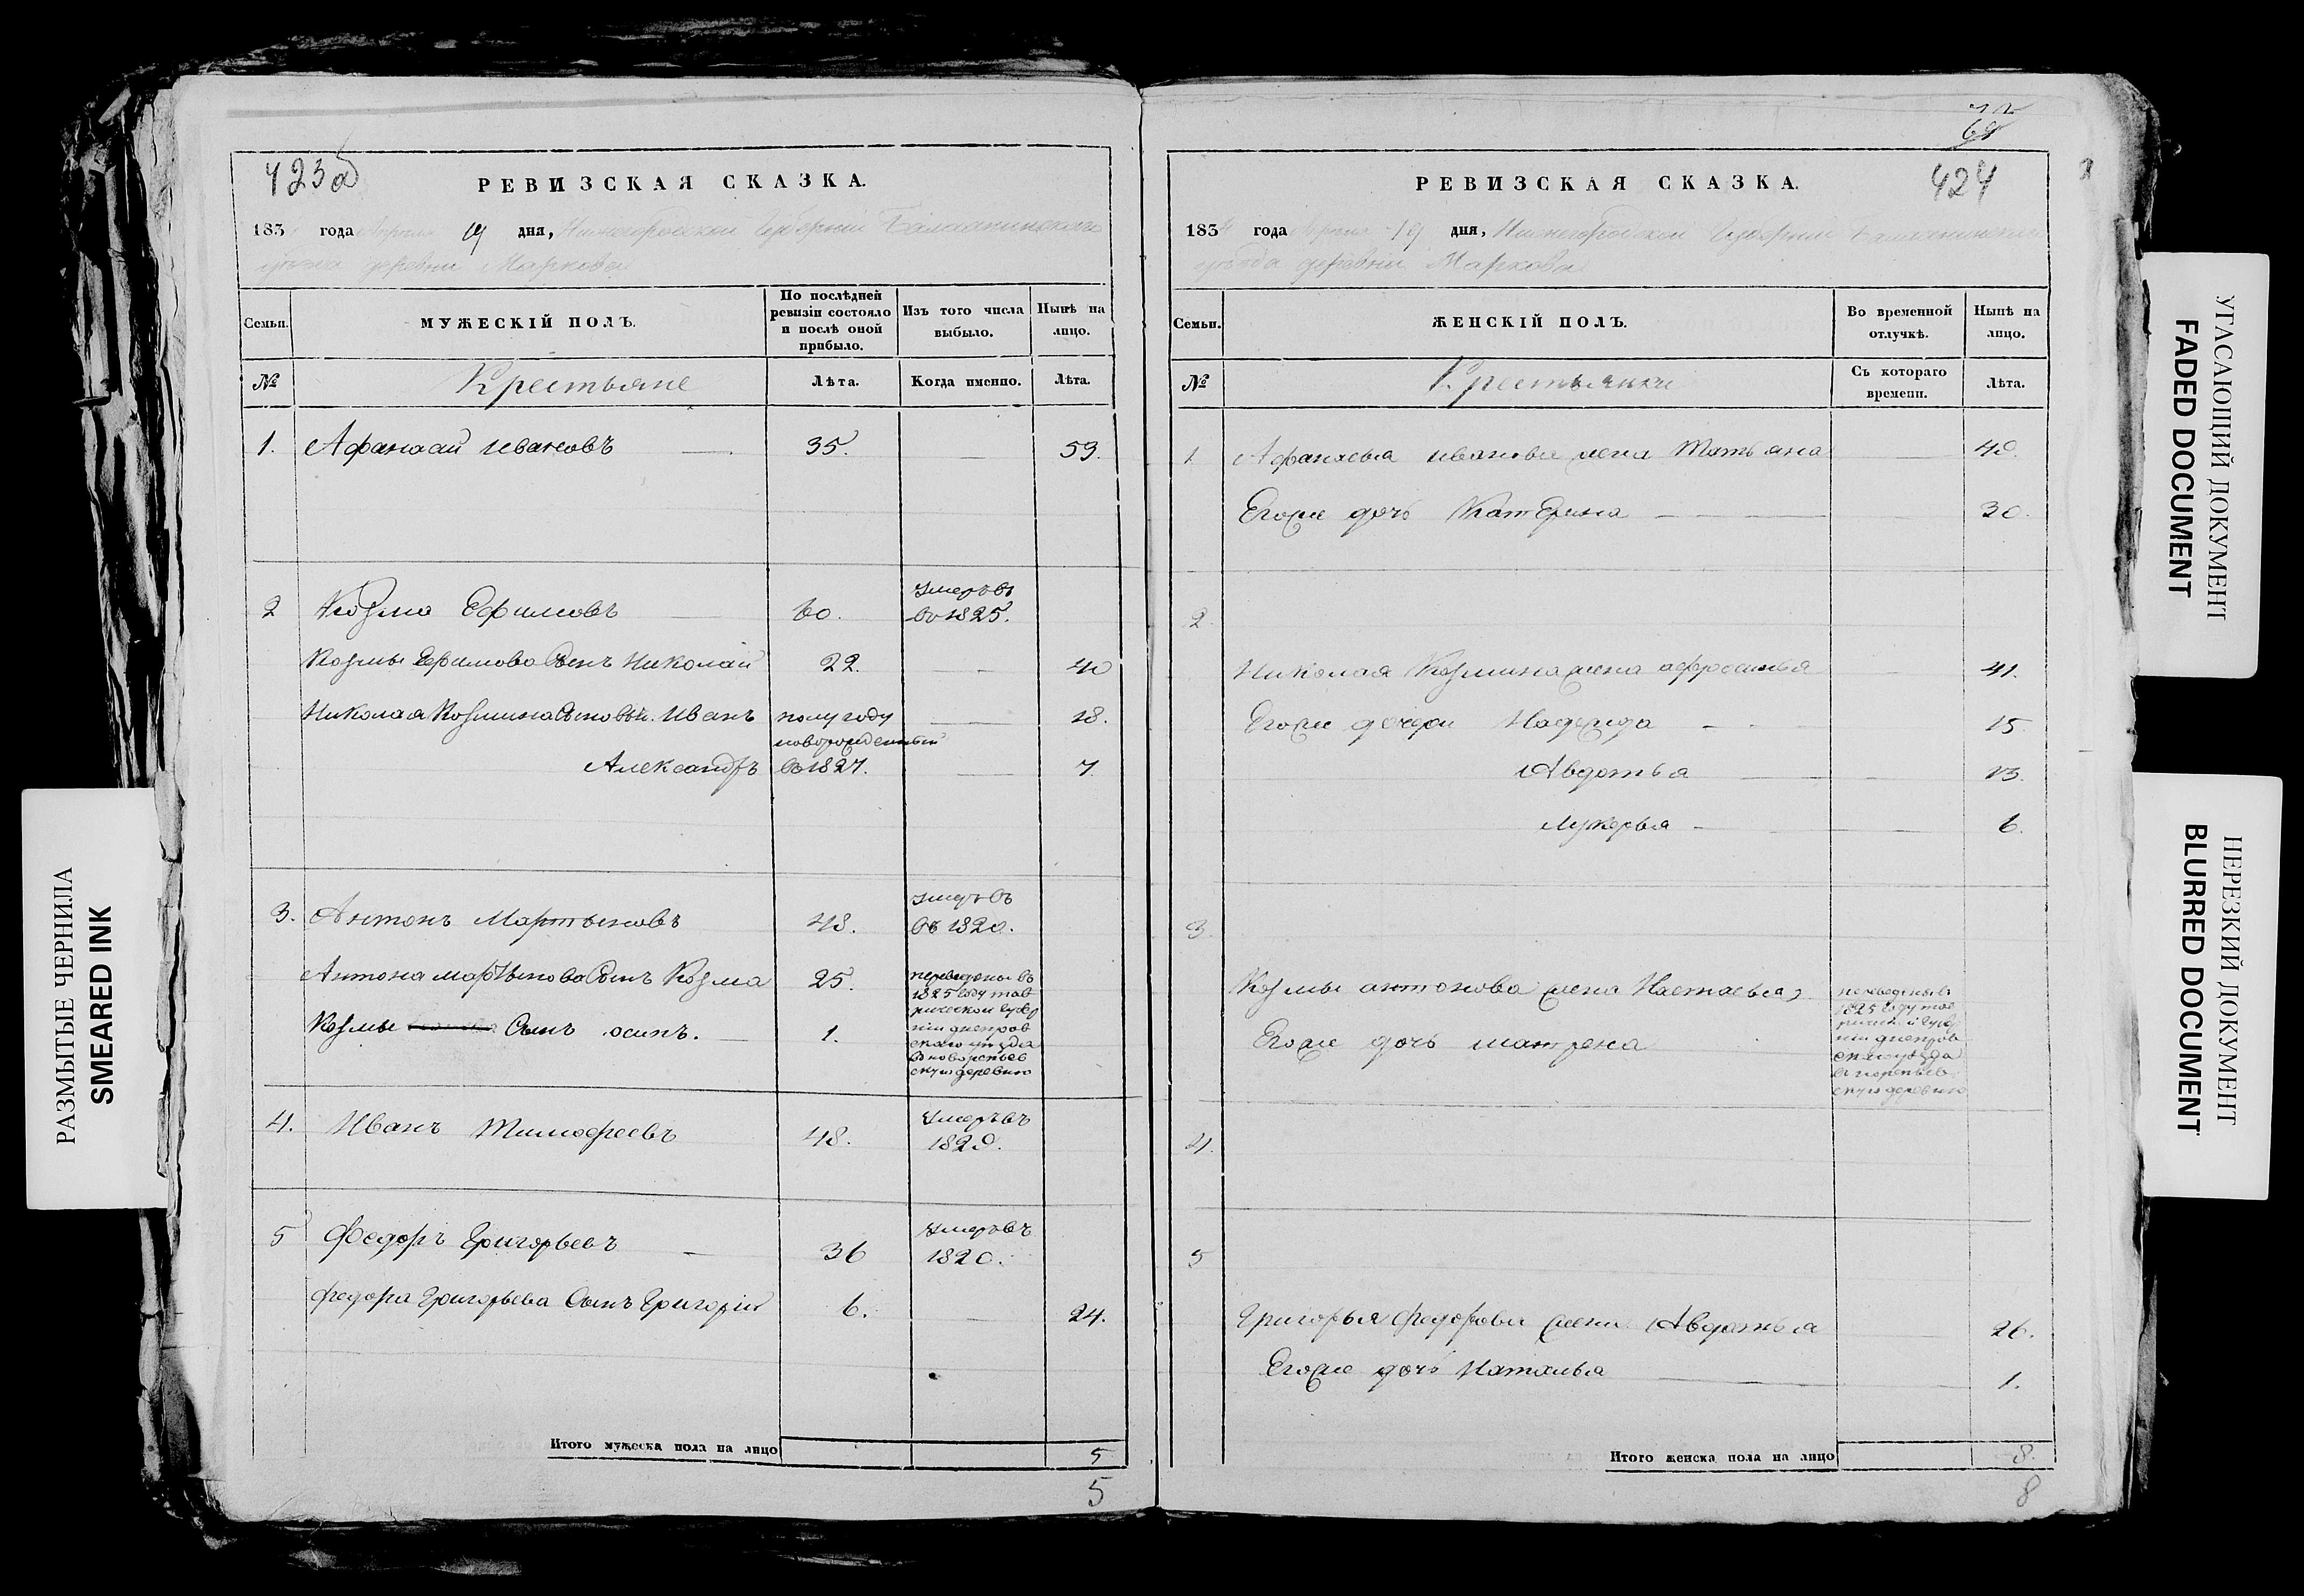 423об
РЕВИЗСКАЯ СКАЗКА.
183 года апреля 19 дня, Нижегородской Губернии Балахнинского
уезда деревни Маркова
Семьи.
МУЖЕСКІЙ ПОЛЪ.
По послѣдней ревизіи состояло и послѣ оной прибыло.
Изъ того числа выбыло.
Нынѣ на лицо.
№
Крестьяне
Лѣта.
Когда именно.
Лѣта.
1. Афанасий Ивановъ 35. 59.
2 Козма Ефимовъ 60. умеръ въ
во 1825.
Козмы Ефимова Сынъ Николай 22. 40
Николая Козмина Сыновья. Иванъ полугоду 18.
новорожденный
Александръ въ 1827. 7
3. Антонъ Мартыновъ 48. умеръ въ
въ 1820.
Антона Мартынова Сынъ Козма 25. переведены въ
1825 году тав
рической губер
Козмы Сынъ осипъ. 1. нии днепров
скаго уезда
скую деревню
4. Иванъ Тимофеевъ 48. Умеръ въ
1829.
5 Федоръ Григорьевъ 36 Умеръ въ
1820.
Федора Григорьева Сынъ Григорий 6. 24.
Итого мужеска пола на лицо 5
5
424
РЕВИЗСКАЯ СКАЗКА.
1834 года апреля 19 дня, Нижегородской Губернии Балахнинского
уезда деревни Маркова
Семьи.
ЖЕНСКІЙ ПОЛЪ.
Во временной отлучкѣ.
Нынѣ на лицо.
№
Крестьянки
Съ котораго времени.
Лѣта.
1 Афанасья иванова жена Татьяна
Егоже дочь Катерина 30.
2.
Николая Козмина жена афросинья 41.
Егоже дочери Надежда 15
Авдотья 13.
лукерья 6.
3
Козмы антонова жена Настасья переведены в
1825 году тав
рической губер
Егоже дочь матрена нии днепров
скаго уезда
скую деревню
4.
5
Григорья Федорова жена Авдотья 26.
Егоже дочь Наталья 1.
Итого женска пола на лицо 8.
8
РАЗМЫТЫЕ ЧЕРНИЛА
SMEARED INK
УГАСАЮЩИЙ ДОКУМЕНТ
FADED DOCUMENT
НЕРЕЗКИЙ ДОКУМЕНТ
BLURRED DOCUMENT